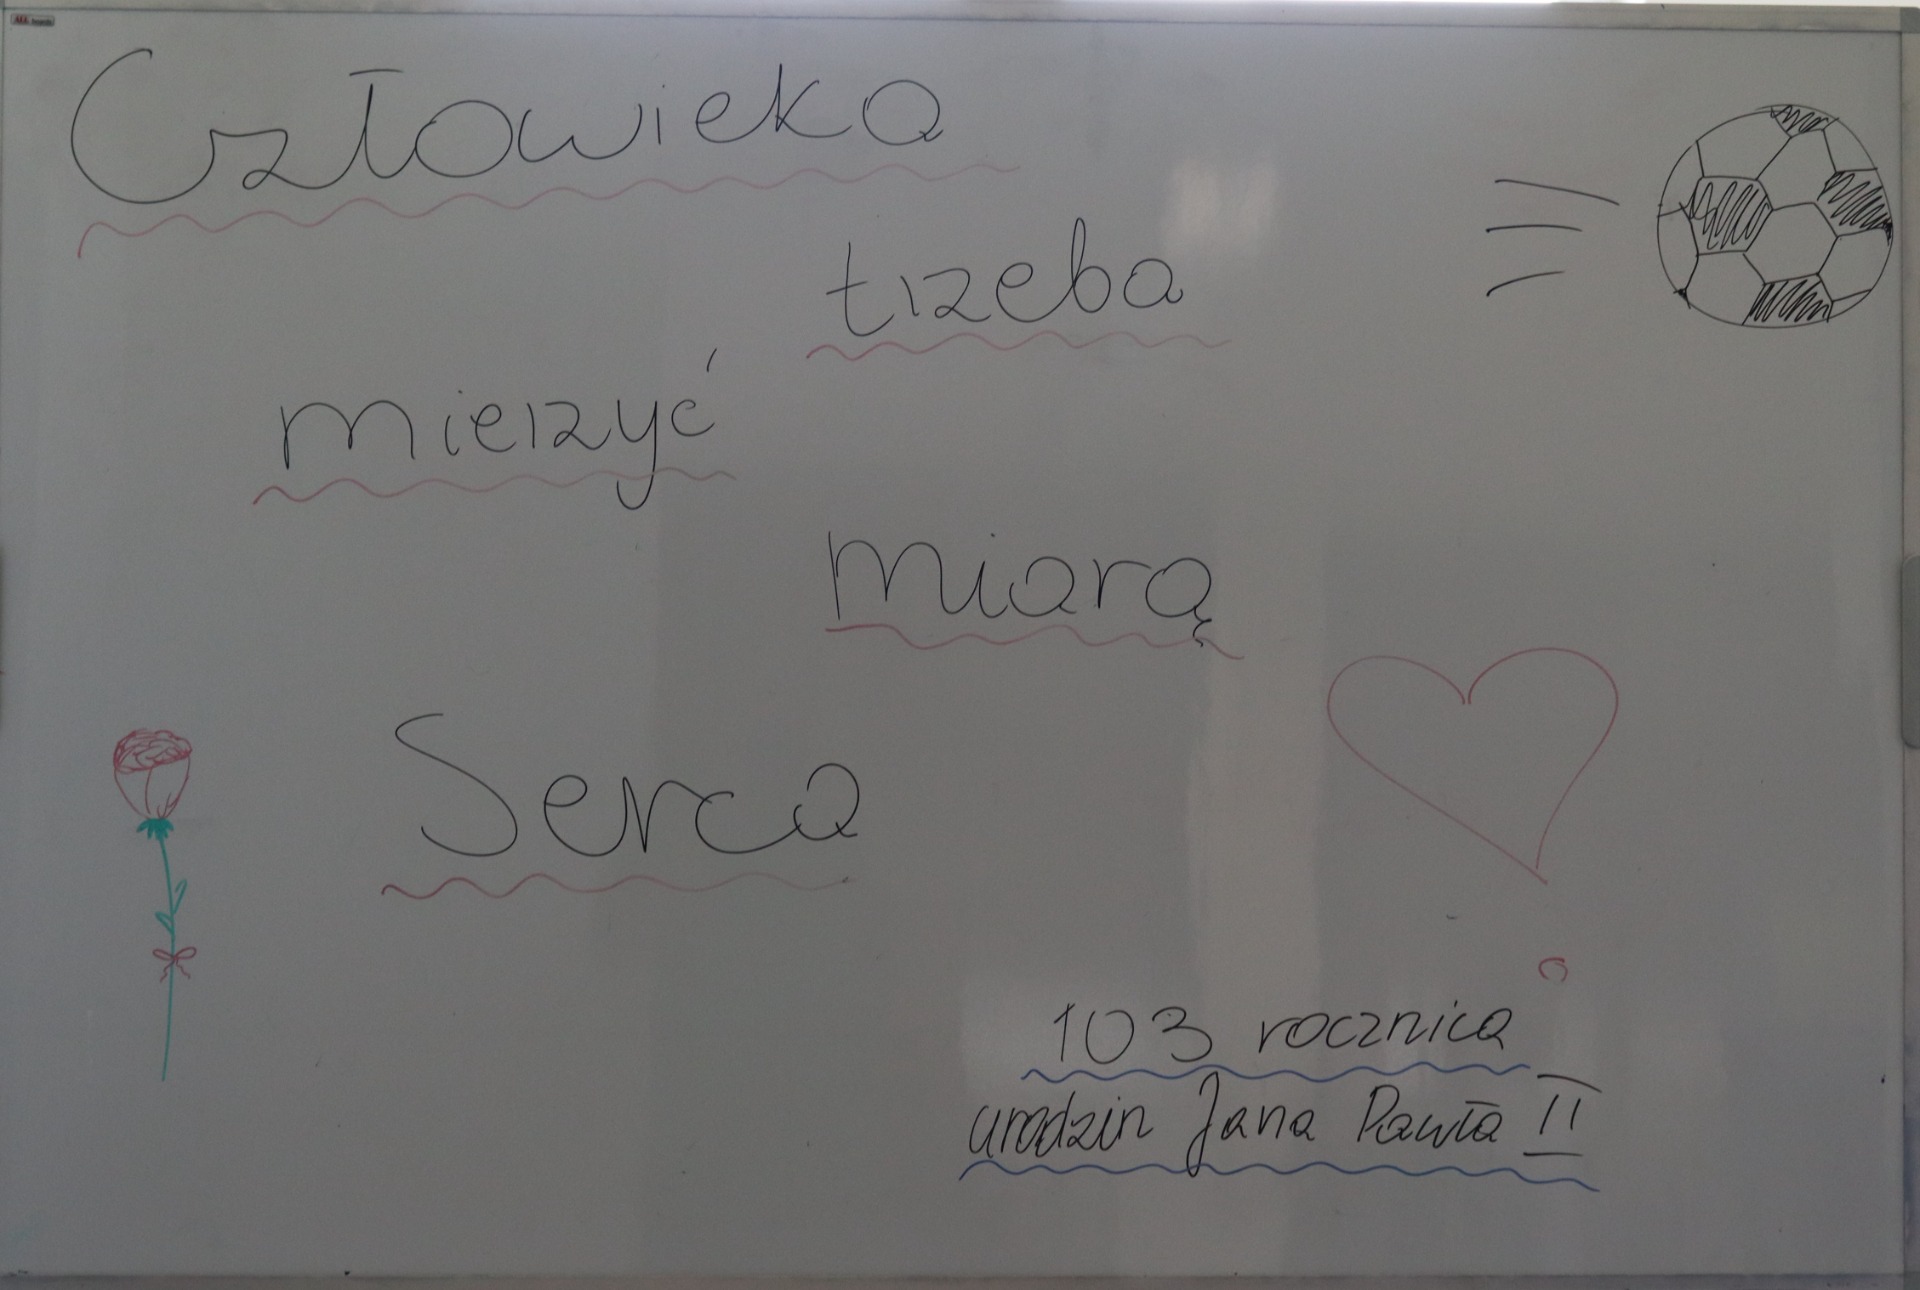 Człowieka
trzeba
mierzyć
miarą
Serca
103 rocznica
urodzin Jana Pawła II